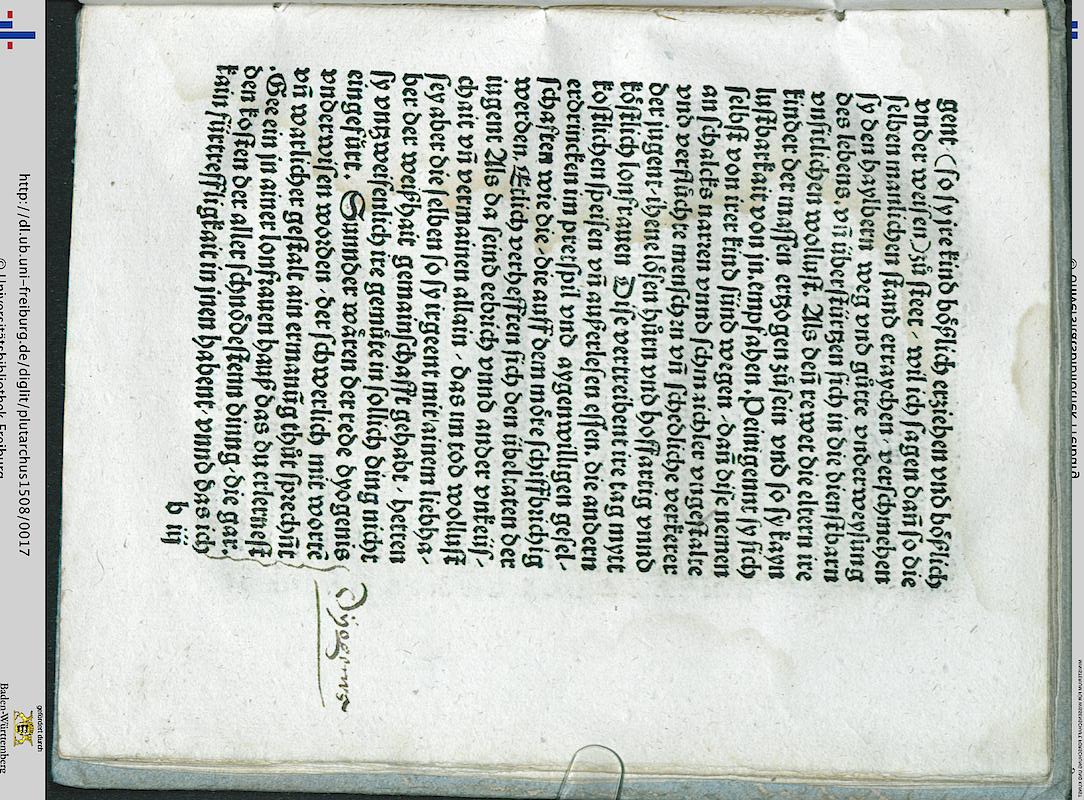 gent (so sy ire kind höflich erziehen vnd höflich
vnder weisen) zů ster, wil ich sagen dañ so die
selben manlichen stand erraychen, verschmehen
sy den haylbern weg vnd gůte vnderweysung
des lebens vñ überstürtzen sich in die dienstbarn
vnsitlichen wollust. Als deñ rewet die eltern ire
kinder der massen erzogen zů sein vnd so sy kayn
lustbarkait von jn empfahen Peinigent sy sich
selbst von irer kind sünd wegen, dañ dise nemen
an schalcks narren vnnd schmaichler vngestalte
vnd verflůchte menschen vñ schedliche verkerer
der jugen, ihene lösen hůrn vnd hoffartig vnnd
köstlich lonfrawen Dise vertreibent ire tag mytt
kostlichen speisen vñ außerlesen essen, die andern
erdrincken im pretspil vnd aygenwilligen gesel-
schaften wie die, die auff dem möre schiffbrichig
werden. Etlich verhefften sich den übeltaten der
jugent Als da seind eebrich vnnd ander vnkeüs-
chait vñ vermainen allain, das im tod wollust
sey aber die selben so sy irgent mit ainem liebha-
ber der weißhait gemainschafft gehabt, hetten
sy vngzweifenlich ire gemüte in sollich ding nicht
eingefürt. Sunnder wären der rede dyogenis
vnderwisen worden der schwerlich mit wortē
vñ warlicher gestalt ain ermanūg thůt sprechūt
Gee ein jn ainer lonfrauen hauß das du erlernest
den kosten der aller schnödestenn dinng, die gar
kain fürtreffigkait in jnen habent, vnnd das ich
b iij
Dyogenus
http://dl.ub.uni-freiburg.de/diglit/plutarchus1508/0017
© Universitätsbibliothek Freiburg
gefördert durch
Baden-Württemberg